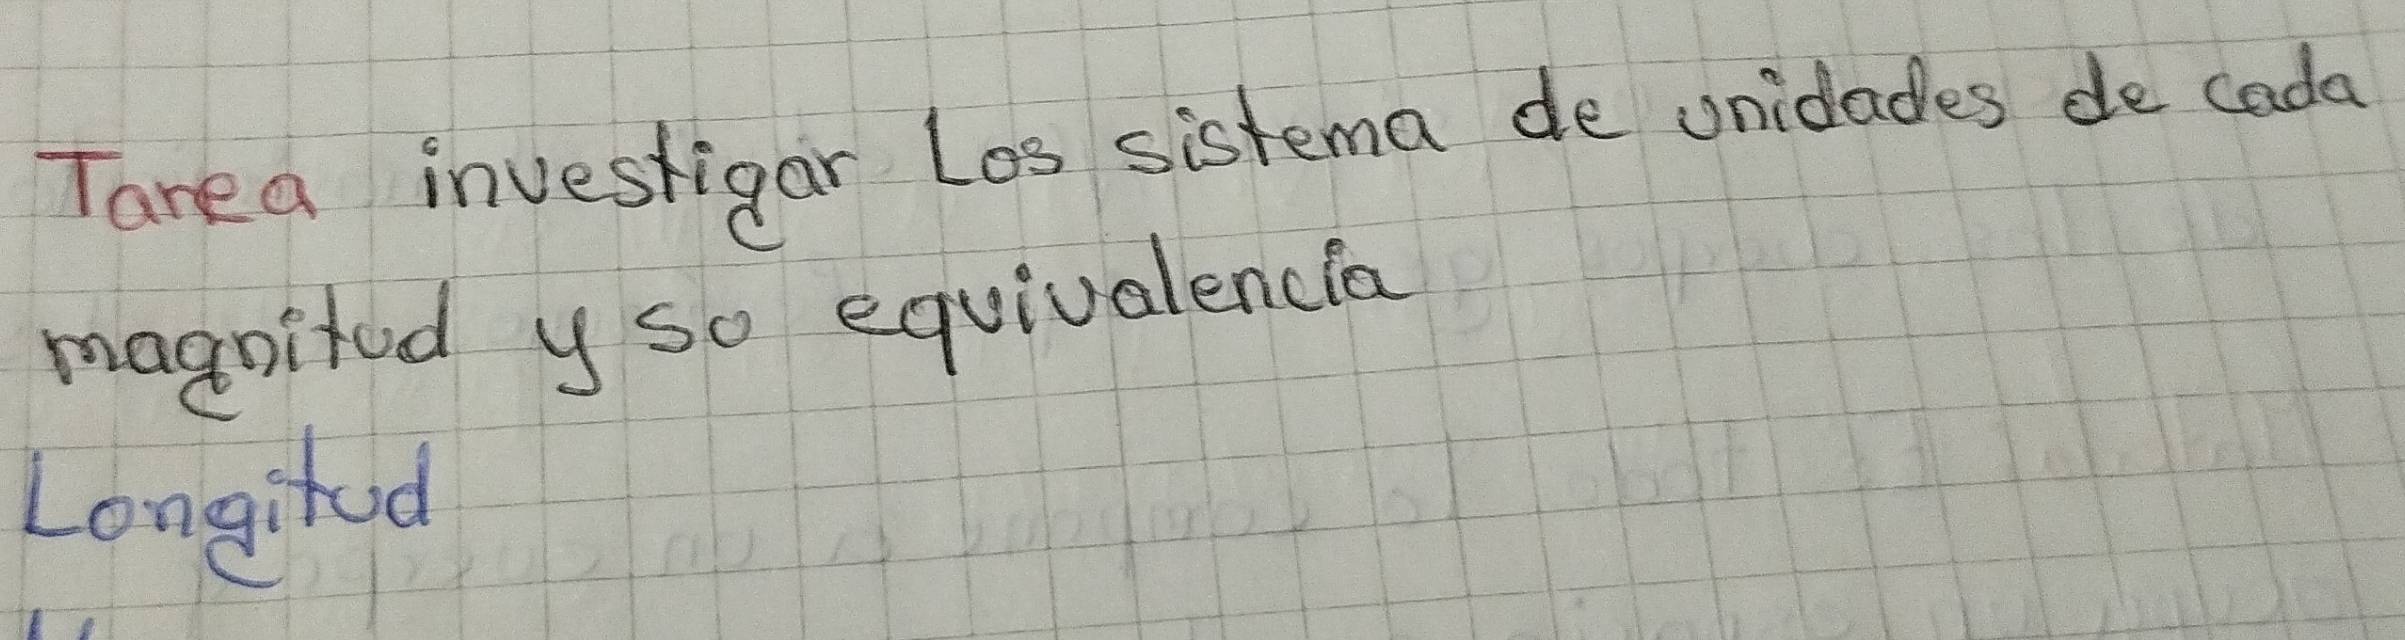 Tarea investigar Los sistema de unidades de cada
magnitud y so equivalencia
Longitud